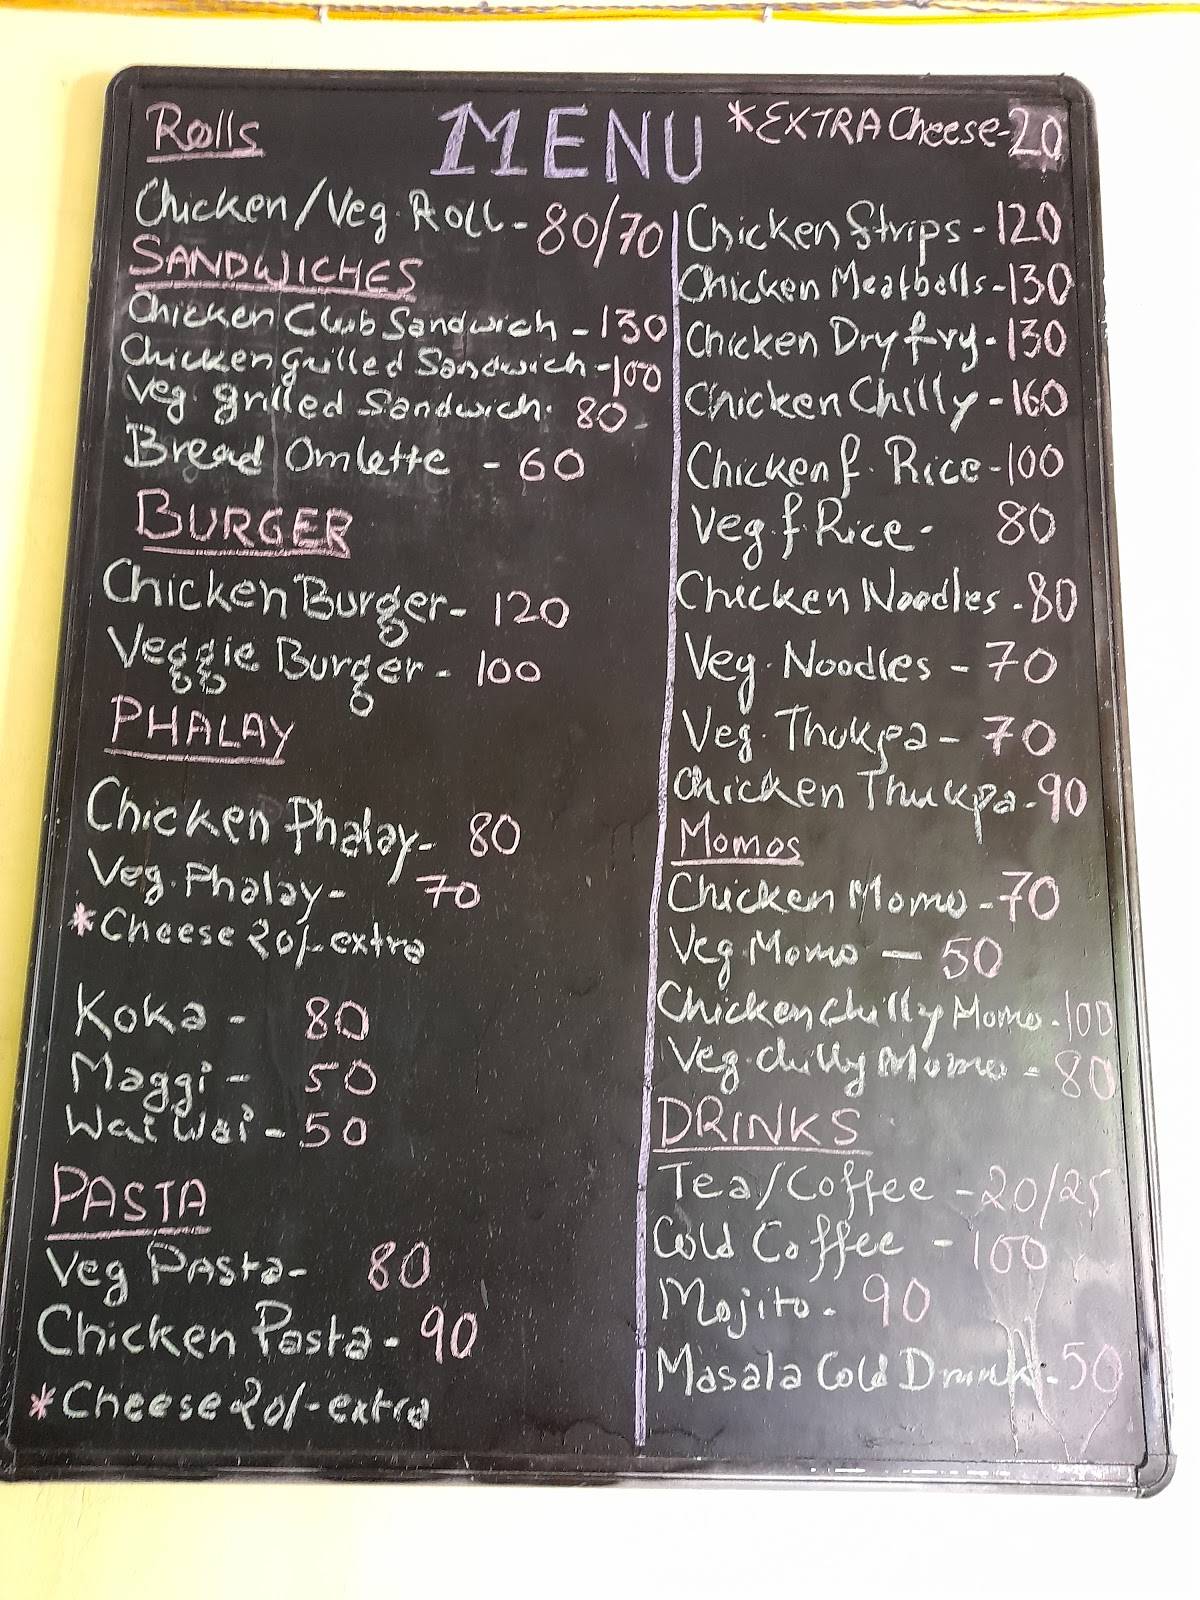 MENU
*EXTRA Cheese-20
Rolls
Chicken/Veg. Roll - 80/70
SANDWICHES
Chicken Club Sandwich - 130
Chicken grilled Sandwich - 100
Veg. grilled Sandwich. 80
Bread Omlette - 60
BURGER
Chicken Burger - 120
Veggie Burger - 100
PHALAY
Chicken Phalay - 80
Veg. Phalay - 70
*Cheese 20/- extra
Koka - 80
Maggi - 50
Wai Wai - 50
PASTA
Veg Pasta - 80
Chicken Pasta - 90
*Cheese 20/- extra
Chicken Strips - 120
Chicken Meatballs - 130
Chicken Dry fry - 130
Chicken Chilly - 160
Chicken f. Rice - 100
Veg. f. Rice - 80
Chicken Noodles - 80
Veg. Noodles - 70
Veg. Thukpa - 70
Chicken Thukpa - 90
Momos
Chicken Momo - 70
Veg. Momo - 50
Chicken chilly Momo - 100
Veg. chilly Momo - 80
DRINKS
Tea/Coffee - 20/25
Cold Coffee - 100
Mojito - 90
Masala Cold Drink - 50